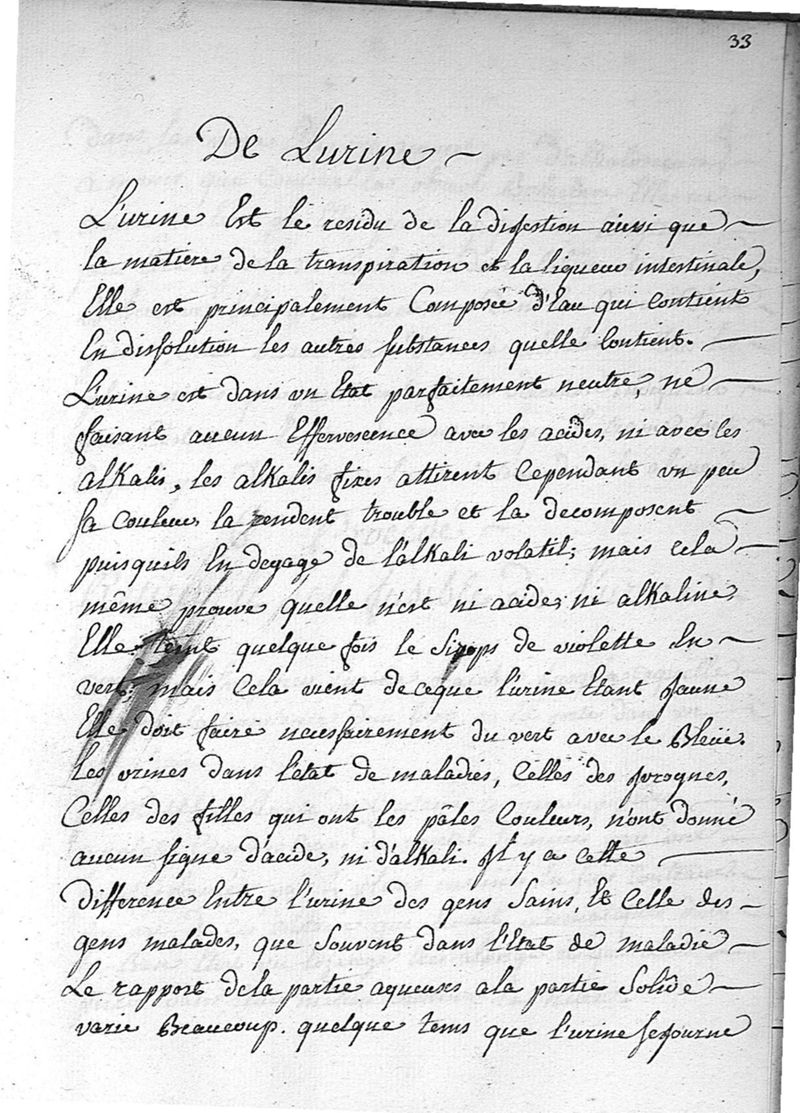 33
De Lurine ~
L'urine Est le residu de la digestion ainsi que
la matiere de la transpiration et la liqueur intestinale,
Elle est principalement Composée d'Eau qui contient
En dissolution les autres substances quelle contient.
L'urine est dans un Etat parfaitement neutre, ne
faisant aucun Effervescence avec les acides, ni avec les
alkalis, les alkalis fixes attirent Cependant un peu
sa Couleur, la rendent trouble et la decomposent
puisquils En degage de l'alkali volatil; mais cela
même prouve quelle n'est ni acide, ni alkaline
Elle teint quelque fois le Sirops de violette En
vert, mais Cela vient de ceque l'urine Etant Jaune
Elle doit faire necessairement du vert avec le Bleüe.
Les urines dans l'état de maladies, Celles des yvrognes,
Celles des filles qui ont les pâles Couleurs, n'ont donné
aucun signe d'acide, ni d'alkali. Il y a Cette
difference Entre l'urine des gens Sains, Et Celle des
gens malades, que Souvent dans l'Etat de maladie
Le rapport dela partie aqueuses ala partie Solide
varie Beaucoup. quelque tems que l'urine Sejourne